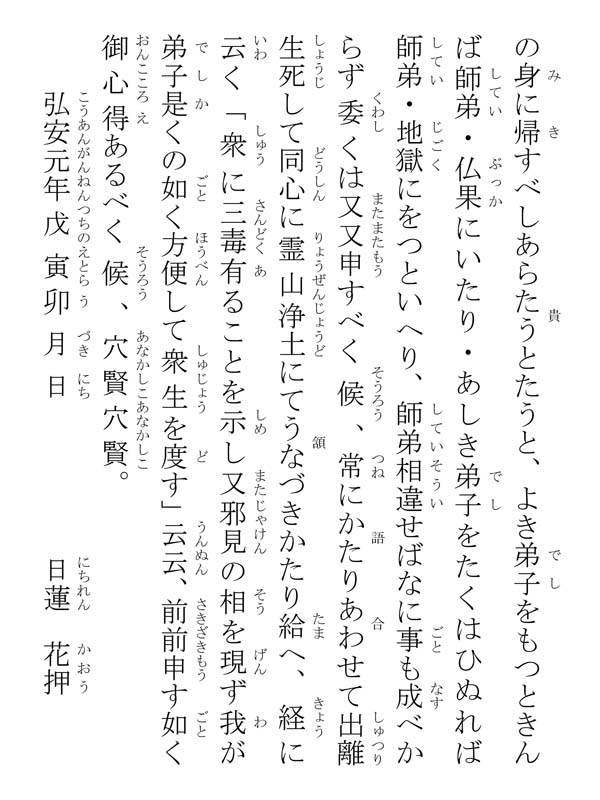 の身に帰すべしあらたうとたうと、よき弟子をもつときん
ば師弟・仏果にいたり・あしき弟子をたくはひぬれば
師弟・地獄にをつといへり、師弟相違せばなに事も成べか
らず委くは又又申すべく候、常にかたりあわせて出離
生死して同心に霊山浄土にてうなづきかたり給へ、経に
云く「衆に三毒有ることを示し又邪見の相を現ず我が
弟子是くの如く方便して衆生を度す」云云、前前申す如く
御心得あるべく候、穴賢穴賢。
弘安元年戊寅卯月日 日蓮 花押